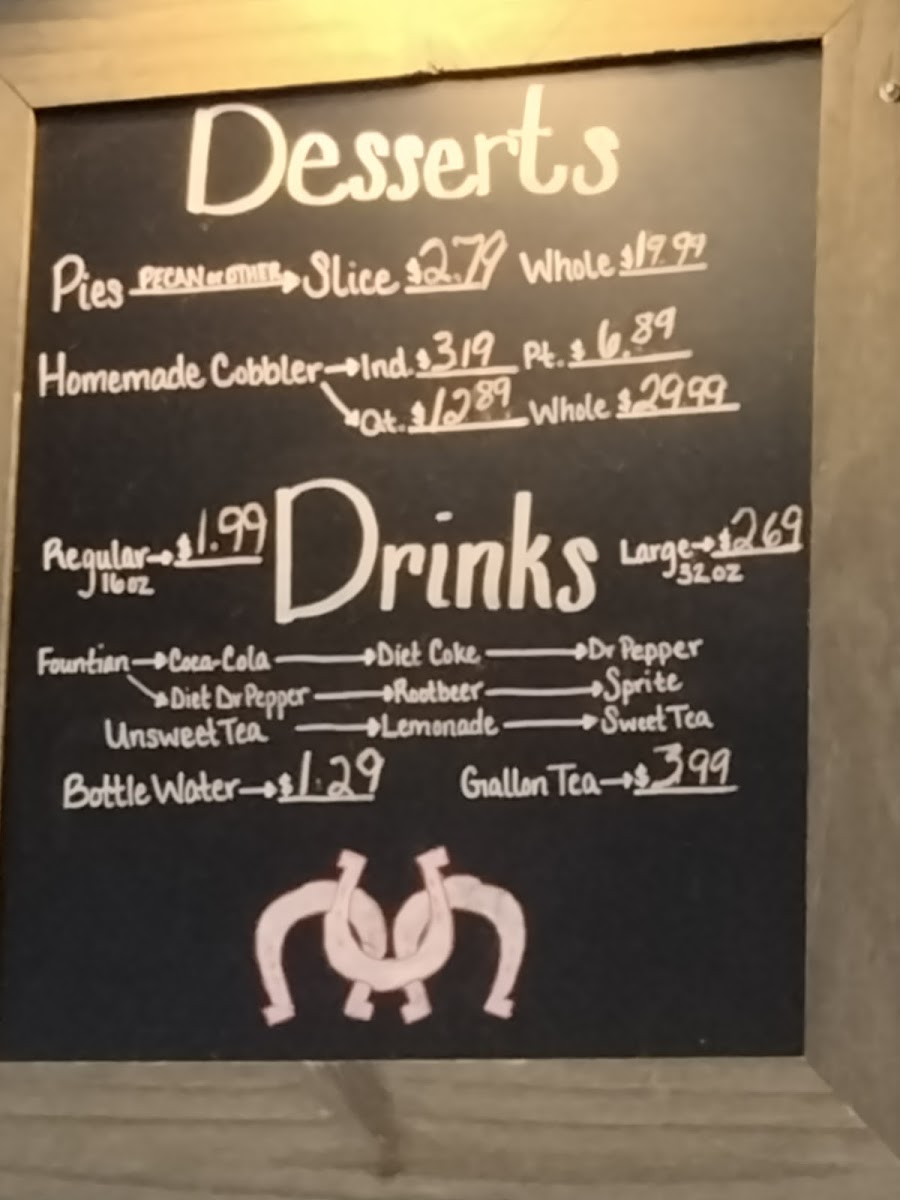 Desserts
Pies PECAN or OTHER Slice $2.79 Whole $19.99
Homemade Cobbler Ind. $3.19 Pt. $6.89
Qt. $12.89 Whole $29.99
Drinks
Regular $1.99 Large $2.69
16 oz 32 oz
Fountian Coca-Cola Diet Coke Dr Pepper
Diet Dr Pepper Rootbeer Sprite
Unsweet Tea Lemonade Sweet Tea
Bottle Water $1.29 Gallon Tea $3.99